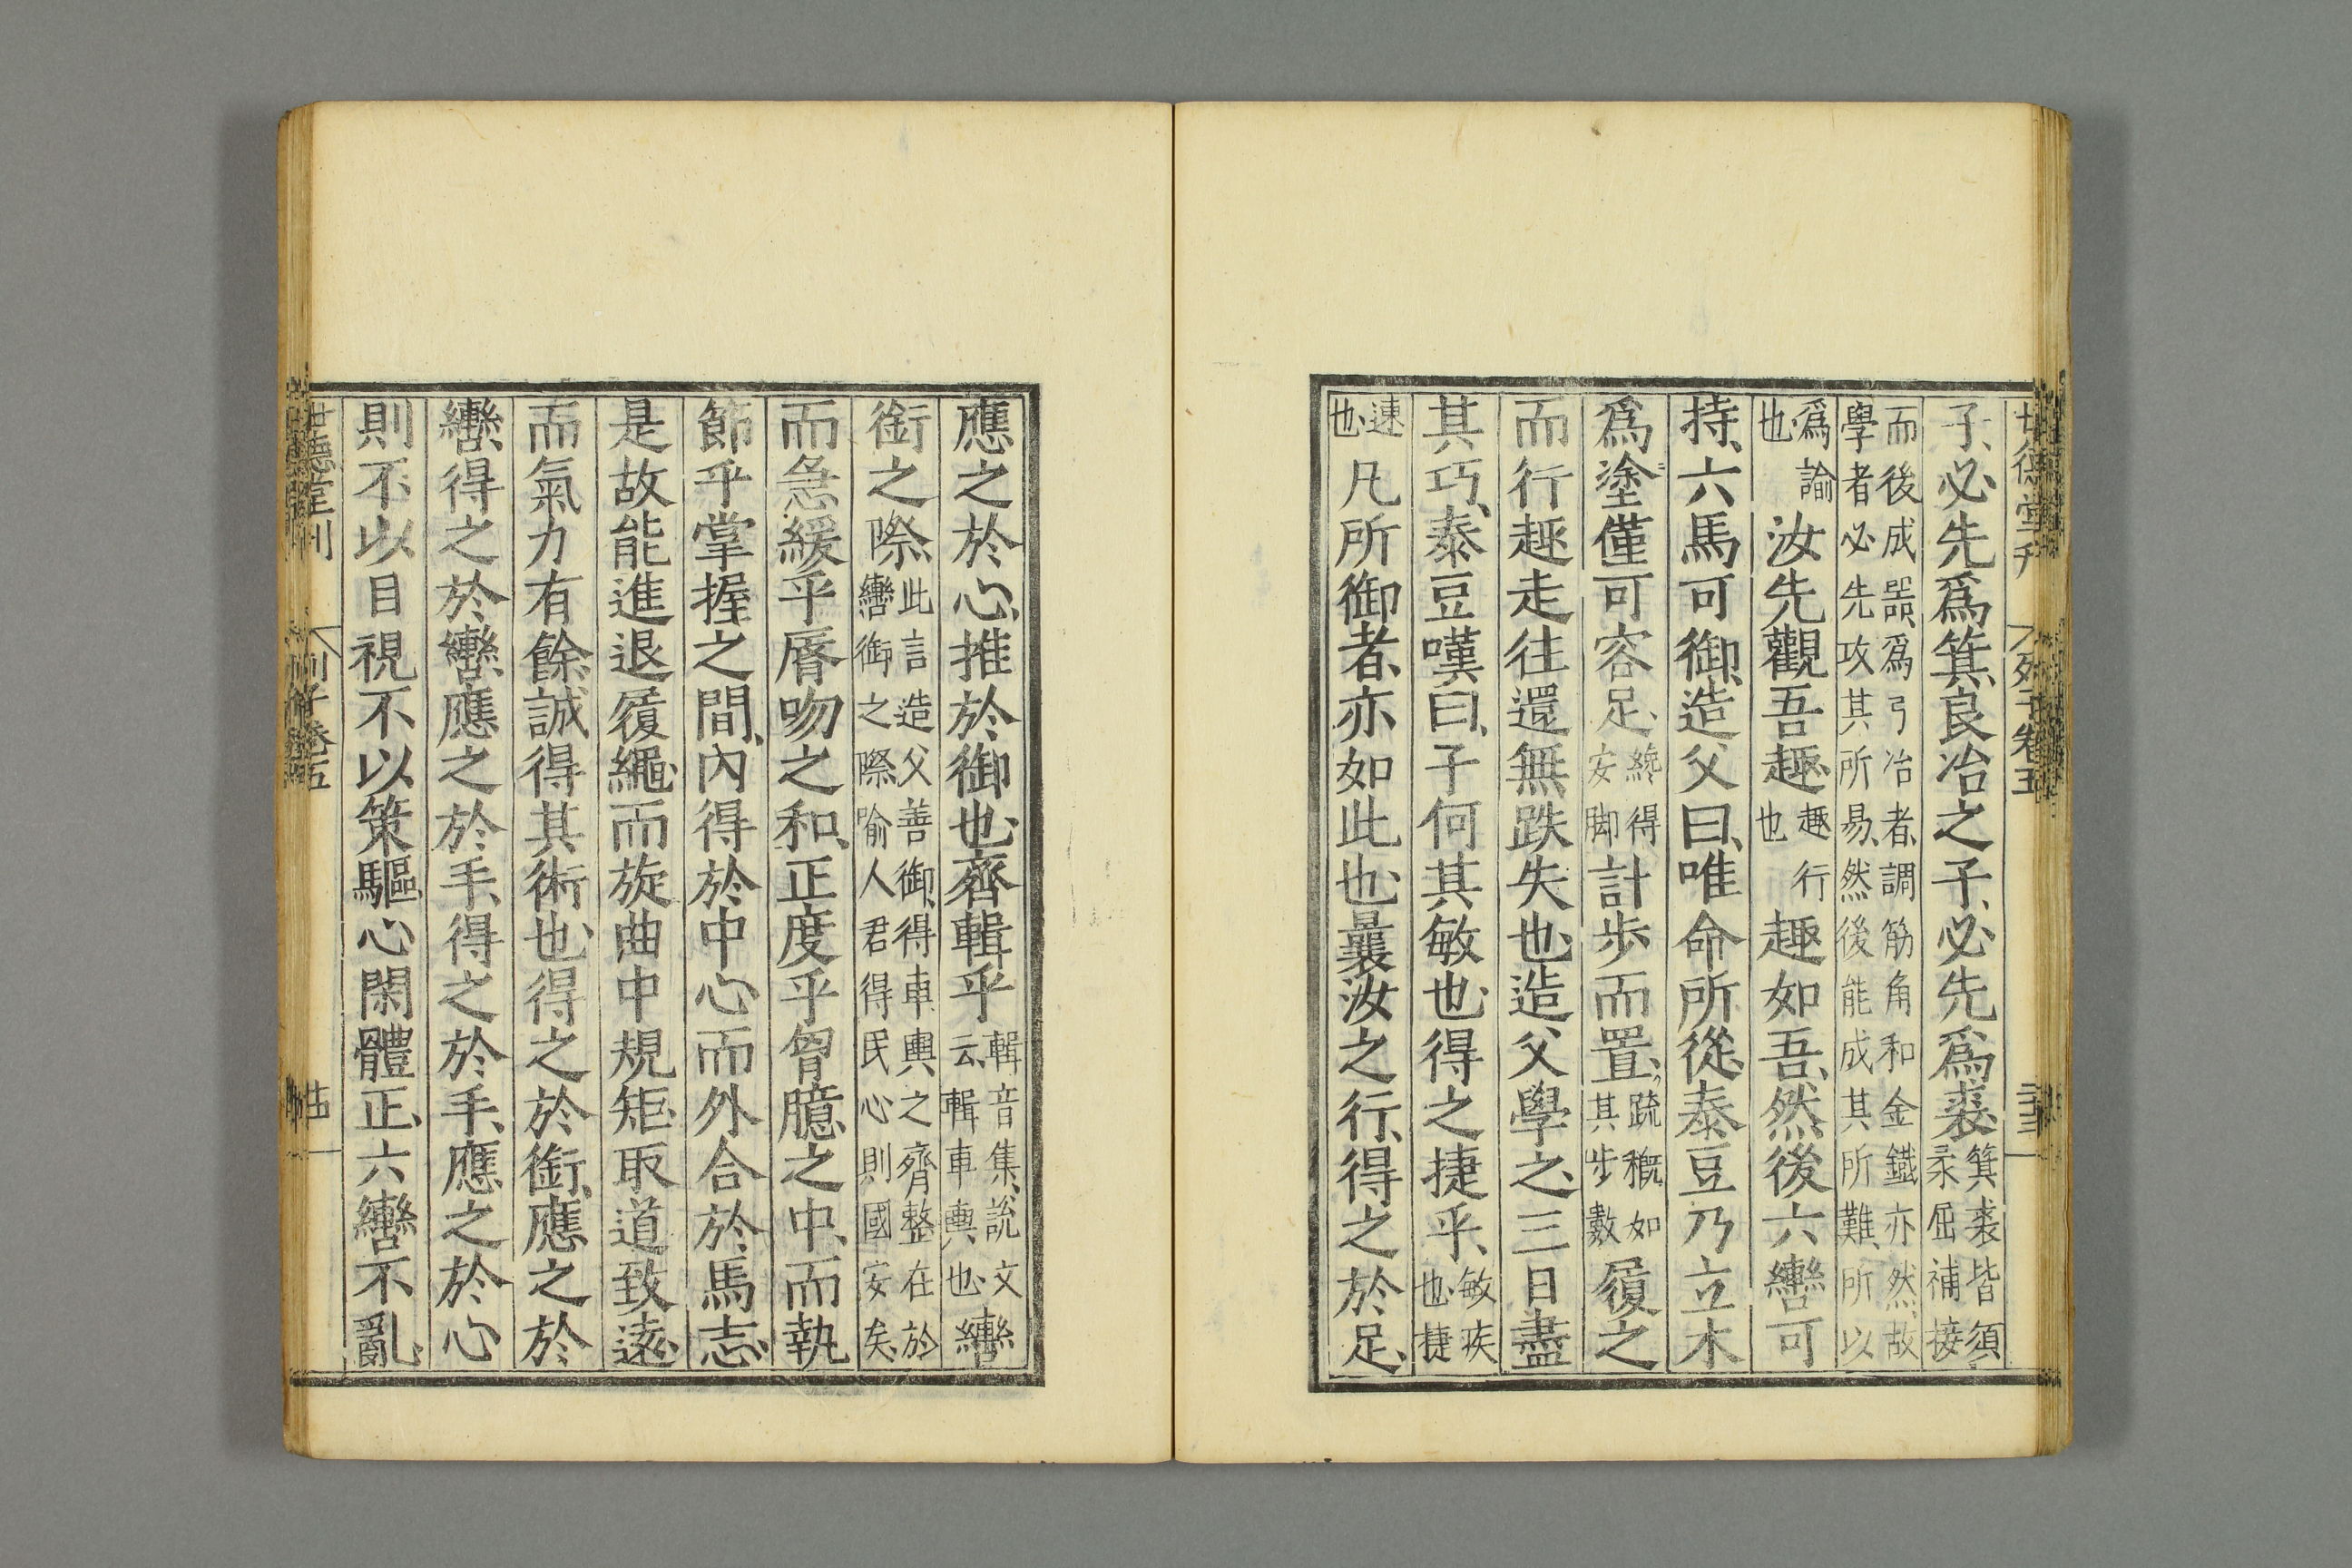 子、必先爲箕、良冶之子、必先爲裘、箕裘皆須柔屈補接
而後成器、爲弓冶者、調筋角和金鐵亦然、故學者必先攻其所易、然後能成其所難、所以
爲諭也、汝先觀吾趣、趣行也趣如吾、然後六轡可
持、六馬可御、造父曰、唯命所從、泰豆乃立木
爲塗、僅可容足、纔得安脚計步而置、疏穊如其步數履之
而行、趣走往還、無跌失也、造父學之、三日盡
其巧、泰豆嘆曰、子何其敏也、得之捷乎、敏疾也、捷
速也、凡所御者、亦如此也、曩汝之行、得之於足、
應之於心、推於御也、齊輯乎輯音集、說文云、輯車輿也、轡
銜之際、此言造父善御、得車輿之齊整在於轡銜之際、喻人君得民心則國安矣、
而急緩乎脣吻之和、正度乎胷臆之中、而執
節乎掌握之間、內得於中心、而外合於馬志、
是故能進退履繩、而旋曲中規矩、取道致遠、
而氣力有餘、誠得其術也、得之於銜、應之於
轡、得之於轡、應之於手、得之於手、應之於心
則不以目視、不以策驅、心閑體正、六轡不亂、
世德堂刊
列子卷五